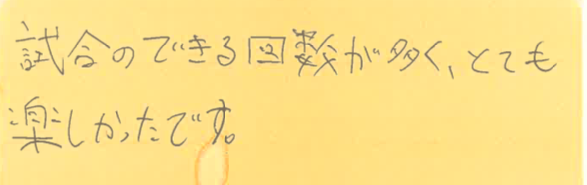 試合のできる回数が多く、とても
楽しかったです。